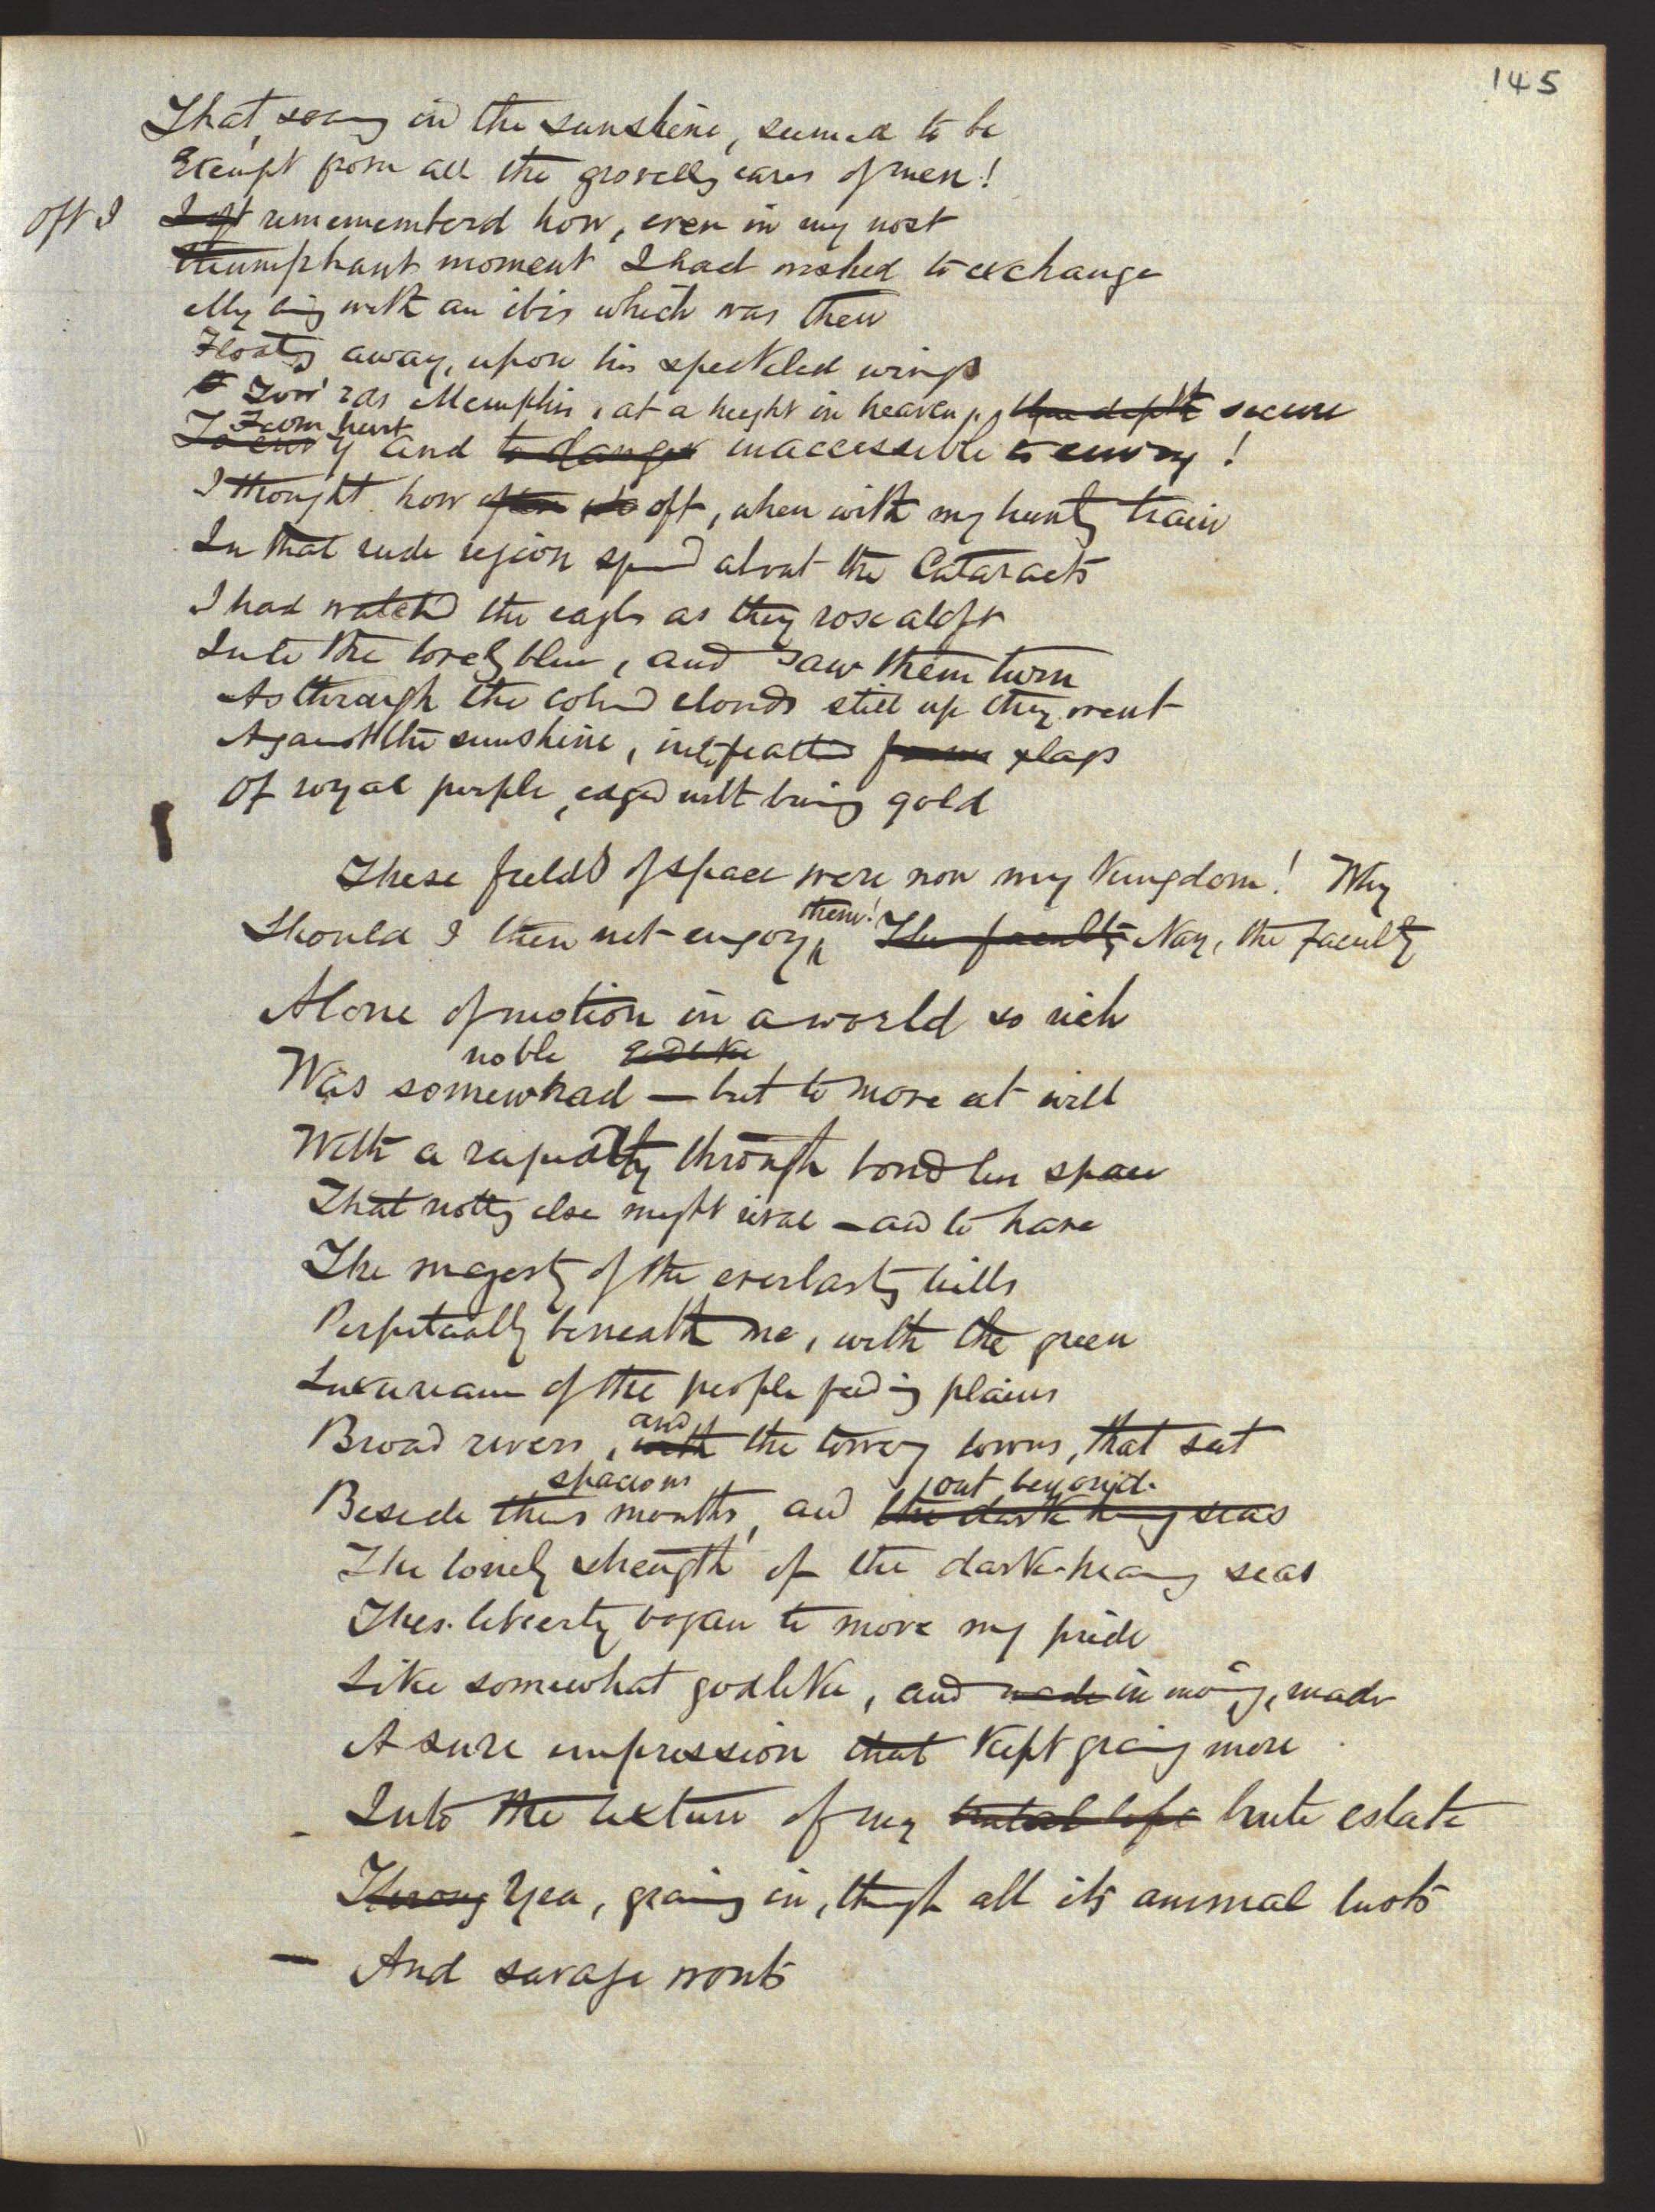 145
That, soaring in the sunshine, seemed to be
Exempt from all the grovellg cares of men!
Oft I I oft rememembered how, even in my most
triumphant moment I had wished to exchange
My being with an ibis which was then
Floatg away, upon his speckled wings
Tow'ras Memphis, at a height in heaven, secure
From hurt
To envy and to danger inaccessible to envy!
I thought how often oft, when with my huntg train
In that rude region spred about the Cataracts
I had watchd the eagles as they rose aloft
Into the lovely blue, and saw them turn
As through the cold clouds still up they went
Against the sunshine, into feathd forms flaps
Of royal purple, edged with burnig gold
These fields of space were now my Kingdom! Why
them!
Should I then not enjoy The faculty Nay, the faculty
Alone of motion in a world so rich
noble Godlike
Was somewhad — but to move at will
With a rapidity through bondless space
That nothg else might rival — and to have
The majesty of the everlastg hills
Perpetually beneath me, with the green
Luxuriance of the people feeding plains
and
Broad rivers, with the towery towns, that sat
spacious out beyond.
Beside their mouths, and the dark heavg seas
The lonely strength of the dark-heavg seas
Thes. liberty began to move my pride
Like somewhat godlike, and made in movig, made
A sure impression that Kept graing more
Into the texture of my brutal life brute estate
Throug Yea, graing in, through all its animal lusts
— And savage wonts